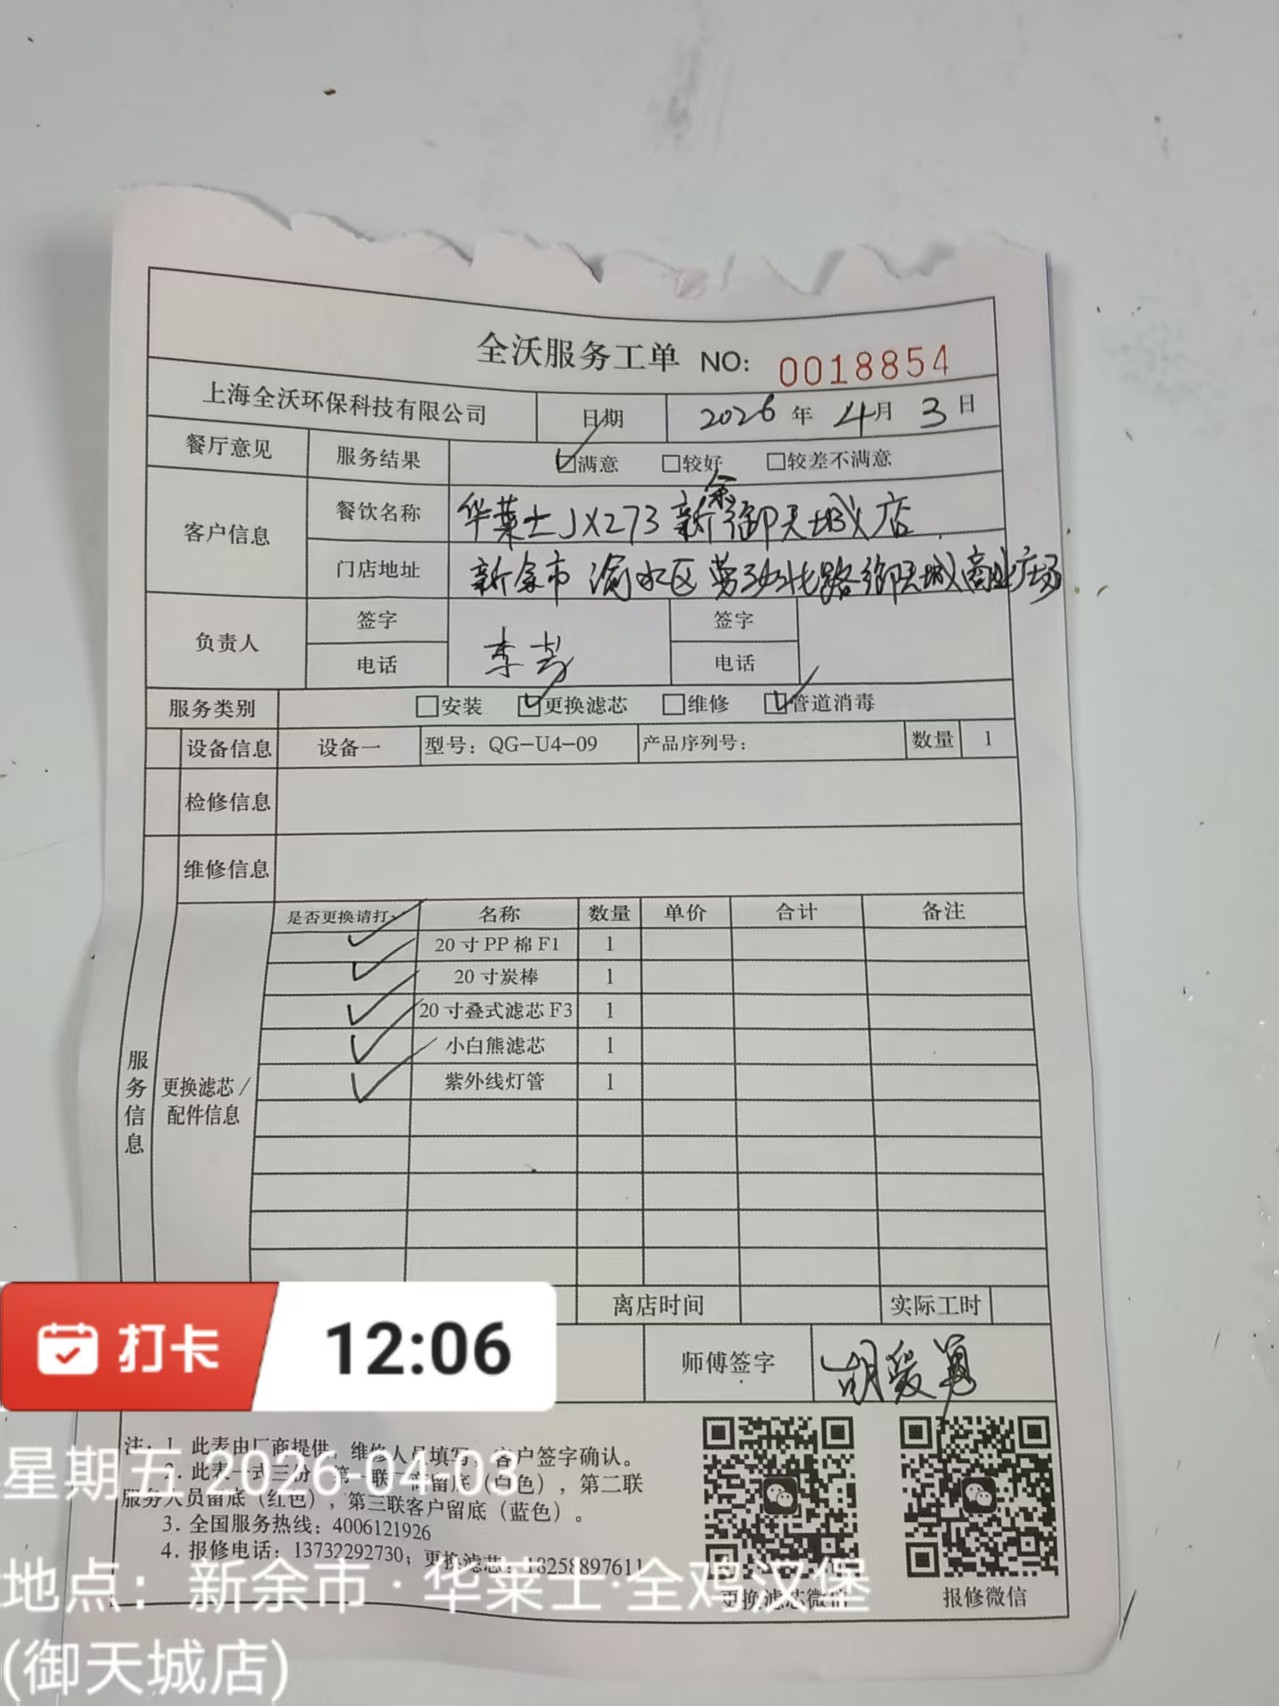 全沃服务工单 NO: 0018854
上海全沃环保科技有限公司 日期 2026年4月3日
餐厅意见 服务结果 ☑满意 □较好 □较差不满意
客户信息 餐饮名称 华莱士JX273新余御天城店
门店地址 新余市渝水区劳动北路御天城商业广场
负责人 签字 签字
电话 电话
李
服务类别 □安装 ☑更换滤芯 □维修 ☑管道消毒
设备信息 设备一 型号：QG-U4-09 产品序列号： 数量 1
检修信息
维修信息
是否更换请打✓ 名称 数量 单价 合计 备注
✓ 20寸PP棉F1 1
✓ 20寸炭棒 1
✓ 20寸叠式滤芯F3 1
✓ 小白熊滤芯 1
✓ 紫外线灯管 1
服务信息
更换滤芯/
配件信息
离店时间 实际工时
师傅签字 胡爱勇
注：1. 此表由厂商提供，维修人员填写，客户签字确认。
2. 此表一式三份，第一联厂商留底（白色），第二联
服务人员留底（红色），第三联客户留底（蓝色）。
3. 全国服务热线：4006121926
4. 报修电话：13732292730；更换滤芯：18258897611
更换滤芯微信 报修微信
打卡 12:06
星期五 2026-04-03
地点：新余市·华莱士·全鸡汉堡
(御天城店)